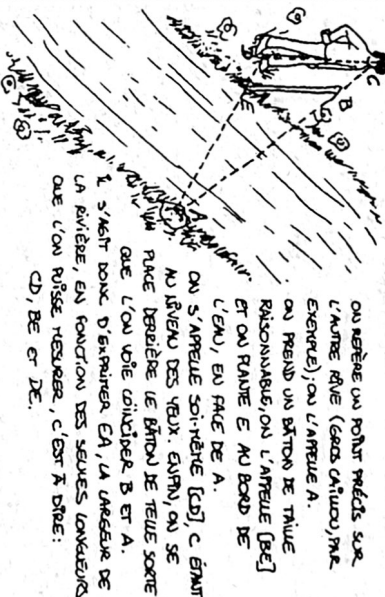 C
B
D
E
A
ON REPÈRE UN POINT PRÉCIS SUR
L'AUTRE RIVE (GROS CAILLOU, PAR
EXEMPLE); ON L'APPELLE A.
ON PREND UN BÂTON DE TAILLE
RAISONNABLE, ON L'APPELLE [BE]
ET ON PLANTE E AU BORD DE
L'EAU, EN FACE DE A.
ON S'APPELLE SOI-MÊME [CD], C ÉTANT
AU NIVEAU DES YEUX. ENFIN, ON SE
PLACE DERRIÈRE LE BÂTON DE TELLE SORTE
QUE L'ON VOIE COÏNCIDER B ET A.
IL S'AGIT DONC D'EXPRIMER EA, LA LARGEUR DE
LA RIVIÈRE, EN FONCTION DES SEULES LONGUEURS
QUE L'ON PUISSE MESURER, C'EST À DIRE:
CD, BE ET DE.